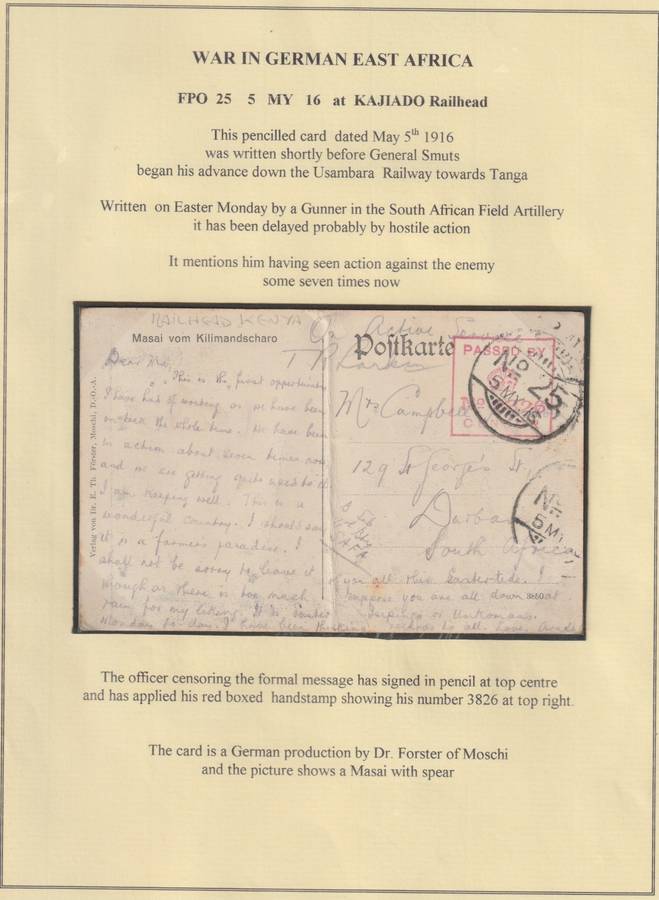 WAR IN GERMAN EAST AFRICA
FPO 25 5 MY 16 at KAJIADO Railhead
This pencilled card dated May 5th 1916
was written shortly before General Smuts
began his advance down the Usambara Railway towards Tanga
Written on Easter Monday by a Gunner in the South African Field Artillery
it has been delayed probably by hostile action
It mentions him having seen action against the enemy
some seven times now
RAILHEAD KENYA
On Active Service
Masai vom Kilimandscharo
Postkarte
PASSED BY
No
CENSOR
No 25
5 MY 16
Verlag von Dr. E. Th. Förster, Moschi, D.-O.-A.
Dear Ma,
This is the first opportunity
I have had of working as we have been
on trek the whole time. We have been
in action about seven times now
and we are getting quite used to it
I am keeping well. This is a
wonderful country. I should say
it is a farmers paradise. I
shall not be sorry to leave it
though as there is too much
rain for my liking. It is Easter
Monday to-day. I have been thinking
of you all this Eastertide. I
suppose you are all down at
or Umkomaas.
to all. Love
Mrs Campbell
129 St George's St,
Durban
South Africa
No
5 MY
3860
The officer censoring the formal message has signed in pencil at top centre
and has applied his red boxed handstamp showing his number 3826 at top right.
The card is a German production by Dr. Forster of Moschi
and the picture shows a Masai with spear